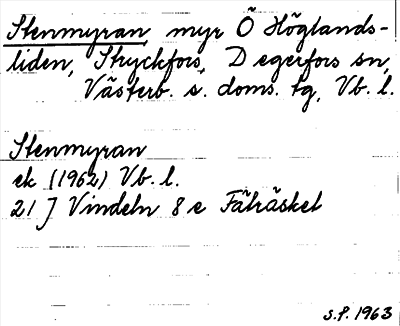 Stenmyran, myr Ö Höglands-
liden, Stryckfors, Degerfors sn,
Västerb. s. doms. tg, Vb. l.
Stenmyran
ek (1962) Vb. l.
21 J Vindeln 8 e Fäträsket
s.f. 1963